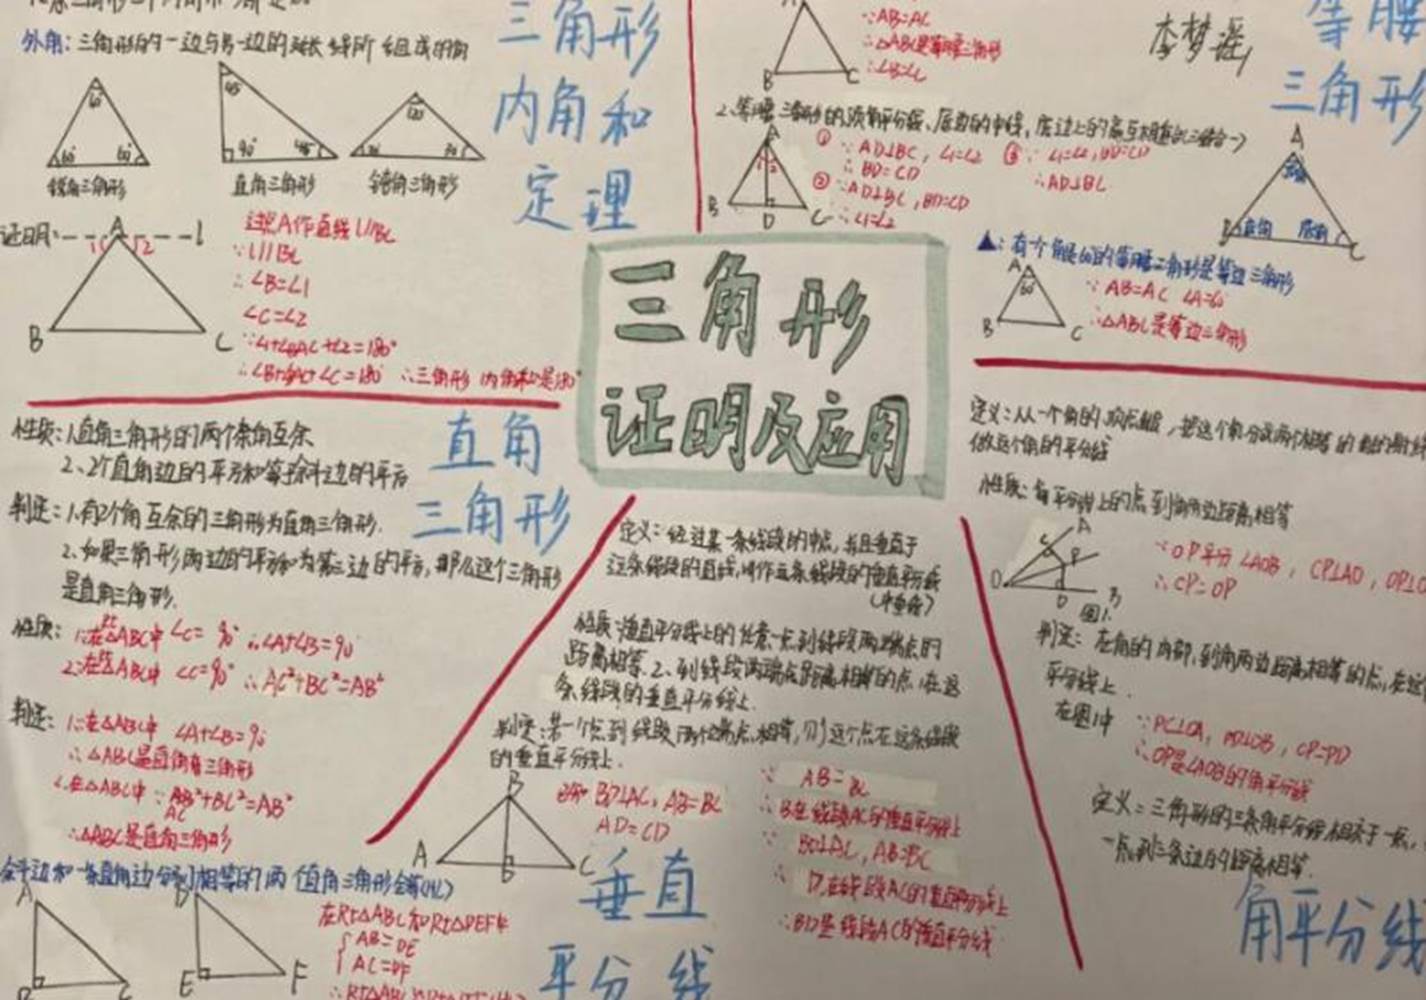 三角形
内角和
定理
外角：三角形的一边与另一边的延长线所组成的角
60°
60°
60°
45°
90°
45°
120°
锐角三角形
直角三角形
钝角三角形
证明：
A
l
1
2
B
C
过点A作直线l//BC
∵l//BC
∴∠B=∠1
∠C=∠2
∵∠1+∠BAC+∠2=180°
∴∠B+∠BAC+∠C=180° ∴三角形内角和是180°
∵AB=AC
∴△ABC是等腰三角形
∴∠B=∠C
B
C
李梦瑶
等腰
三角形
2、等腰三角形的顶角平分线、底边的中线，底边上的高互相重合(三线合一)
① ∵AD⊥BC，∠1=∠2
∴BD=CD
② ∵AD⊥BC，BD=CD
∴∠1=∠2
③ ∵∠1=∠2，BD=CD
∴AD⊥BC
A
1
2
B
D
C
A
顶角
底角
底角
B
C
▲：有一个角是60°的等腰三角形是等边三角形
A
60°
B
C
∵AB=AC ∠A=60°
∴△ABC是等边三角形
三角形
证明及应用
直角
三角形
性质：1.直角三角形的两个余角互余
2、2个直角边的平方和等于斜边的平方
判定：1.有2个角互余的三角形为直角三角形.
2、如果三角形两边的平方和为第三边的平方，那么这个三角形
是直角三角形.
性质：1:在Rt△ABC中 ∠C=90° ∴∠A+∠B=90
2:在Rt△ABC中 ∠C=90° ∴AC²+BC²=AB²
判定：1:在△ABC中 ∠A+∠B=90
∴△ABC是直角三角形
2.在△ABC中 ∵AC²+BC²=AB²
∴△ABC是直角三角形
斜边和一条直角边分别相等的两直角三角形全等(HL)
A
B
C
D
E
F
在Rt△ABC和Rt△DEF中
AB=DE
AC=DF
定义：经过某一条线段的中点，并且垂直于
这条线段的直线，叫作这条线段的垂直平分线
(中垂线)
性质：垂直平分线上的任意一点到线段两端点的
距离相等、2、到线段两端点距离相等的点，在这
条线段的垂直平分线上.
判定：某一个点到线段两个端点相等，则这个点在这条线段
的垂直平分线上.
B
A
C
已知 BD⊥AC，AB=BC
AD=CD
∵ AB=BC
∴B在线段AC的垂直平分线上
∵ BD⊥AC，AB=BC
∴ D在线段AC的垂直平分线上
∴BD是线段AC的垂直平分线
垂直
平分线
定义：从一个角的顶点出发，把这个角分成两个相等的角的射线
做这个角的平分线
性质：角平分线上的点到角两边距离相等
A
C
P
O
D
B
图1.
∵OP平分∠AOB，CP⊥AO，DP⊥O
∴CP=DP
判定：在角的内部，到角两边距离相等的点，在这
平分线上.
在图1中 ∵PC⊥OA，PD⊥OB，CP=PD
∴OP是∠AOB的角平分线
定义：三角形的三条角平分线相交于一点，
一点到三条边的距离相等.
角平分线